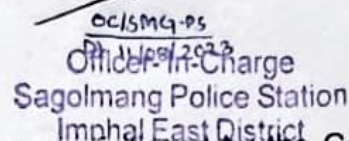 OC/SMG-PS
Dt. 11/08/2023
Officer-In-Charge
Sagolmang Police Station
Imphal East District